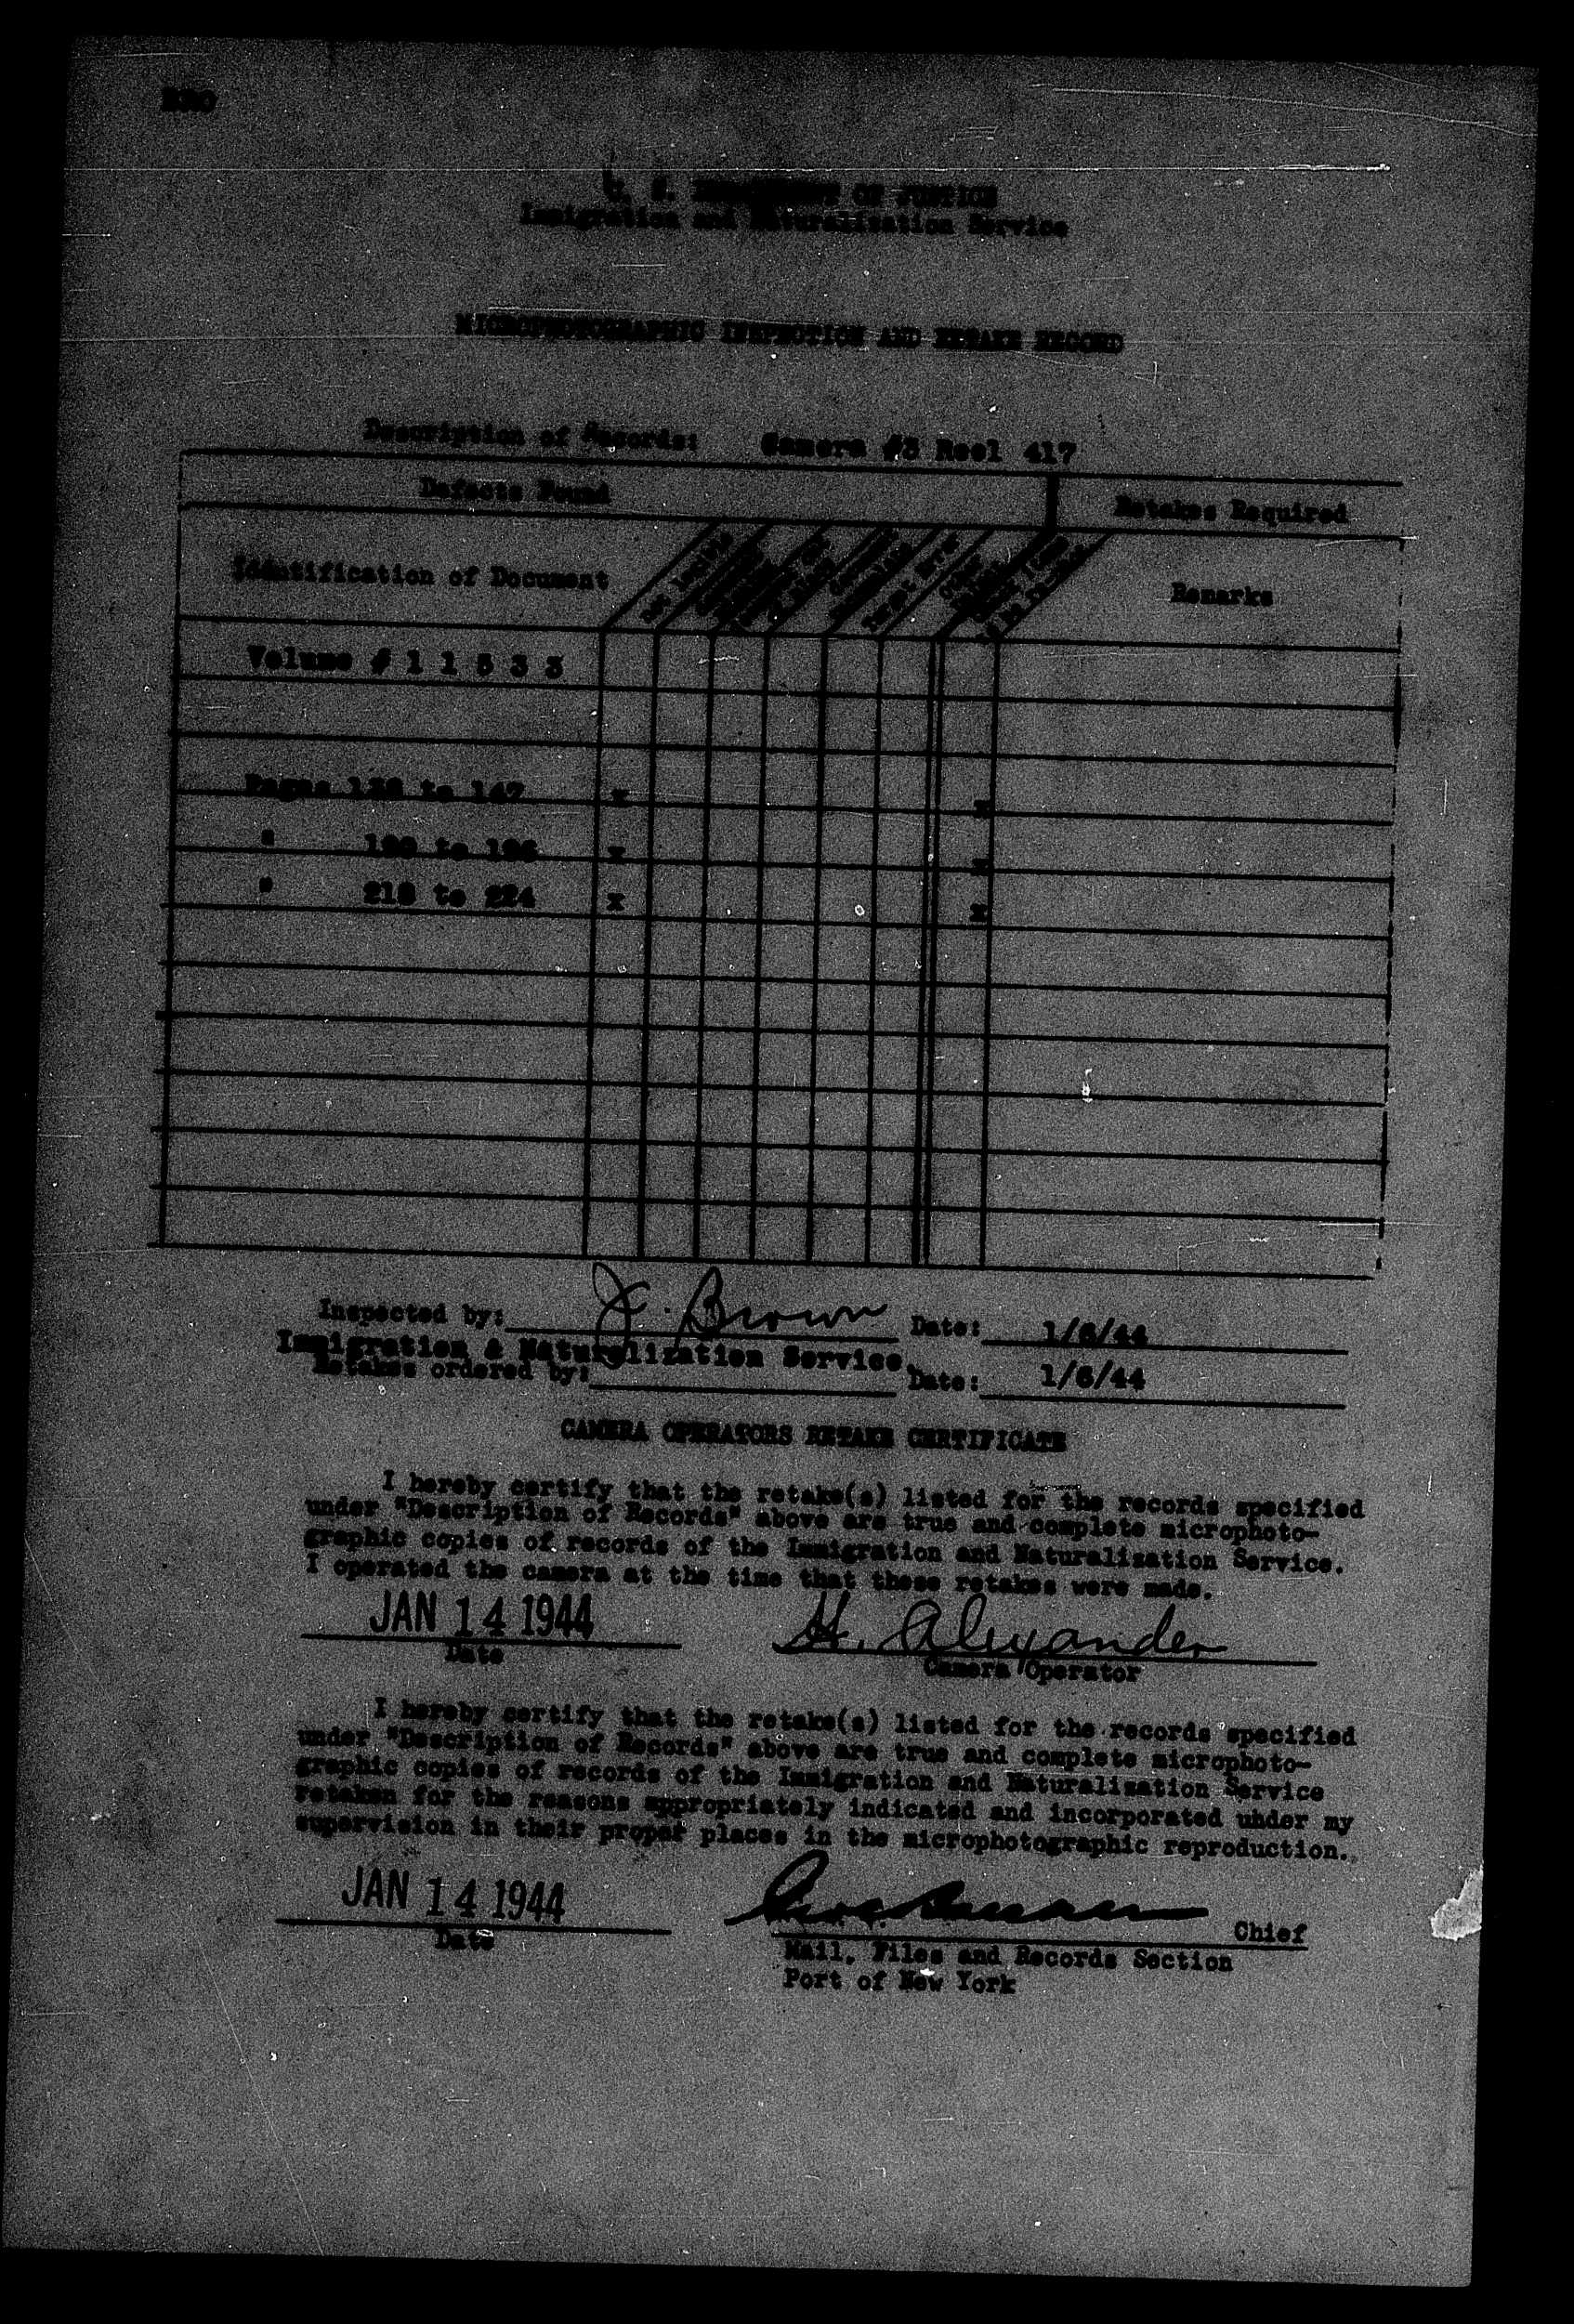 U. S. DEPARTMENT OF JUSTICE
Immigration and Naturalization Service
MICROPHOTOGRAPHIC INSPECTION AND RETAKE RECORD
Description of Records: Camera #3 Reel 417
Defects Found
Retakes Required
Identification of Document
Not Legible
Remarks
Volume # 1 1 5 3 3
Pages 138 to 147 x x
" 190 to 196 x x
" 218 to 224 x x
Inspected by: J. Brown Date: 1/6/44
Immigration & Naturalization Service
Retakes ordered by: Date: 1/6/44
CAMERA OPERATORS RETAKE CERTIFICATE
I hereby certify that the retake(s) listed for the records specified
under "Description of Records" above are true and complete microphoto-
graphic copies of records of the Immigration and Naturalization Service.
I operated the camera at the time that these retakes were made.
JAN 14 1944 H. Alexander
Date Camera Operator
I hereby certify that the retake(s) listed for the records specified
under "Description of Records" above are true and complete microphoto-
graphic copies of records of the Immigration and Naturalization Service
retaken for the reasons appropriately indicated and incorporated under my
supervision in their proper places in the microphotographic reproduction.
JAN 14 1944 Chief
Date Mail, Files and Records Section
Port of New York